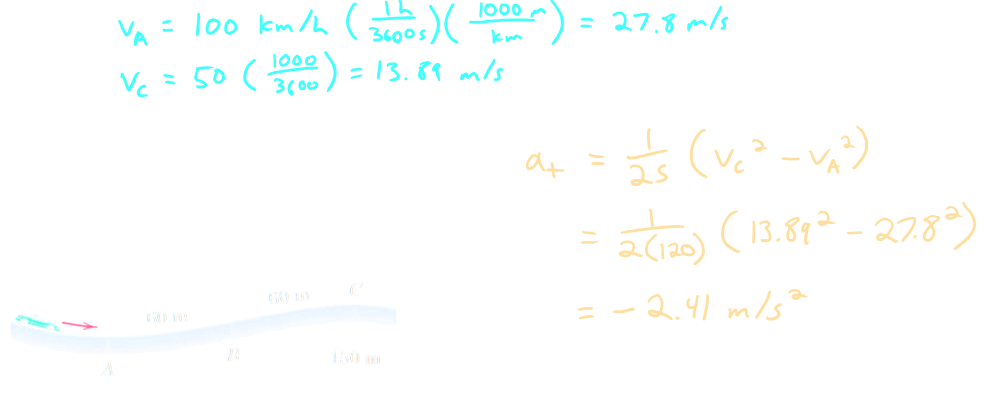 v_A = 100 km/h (1h/3600s)(1000 m/km) = 27.8 m/s
v_C = 50 (1000/3600) = 13.89 m/s
a_t = 1/2s (v_C² - v_A²)
= 1/2(120) (13.89² - 27.8²)
= -2.41 m/s²
60 m 60 m C
A B 150 m